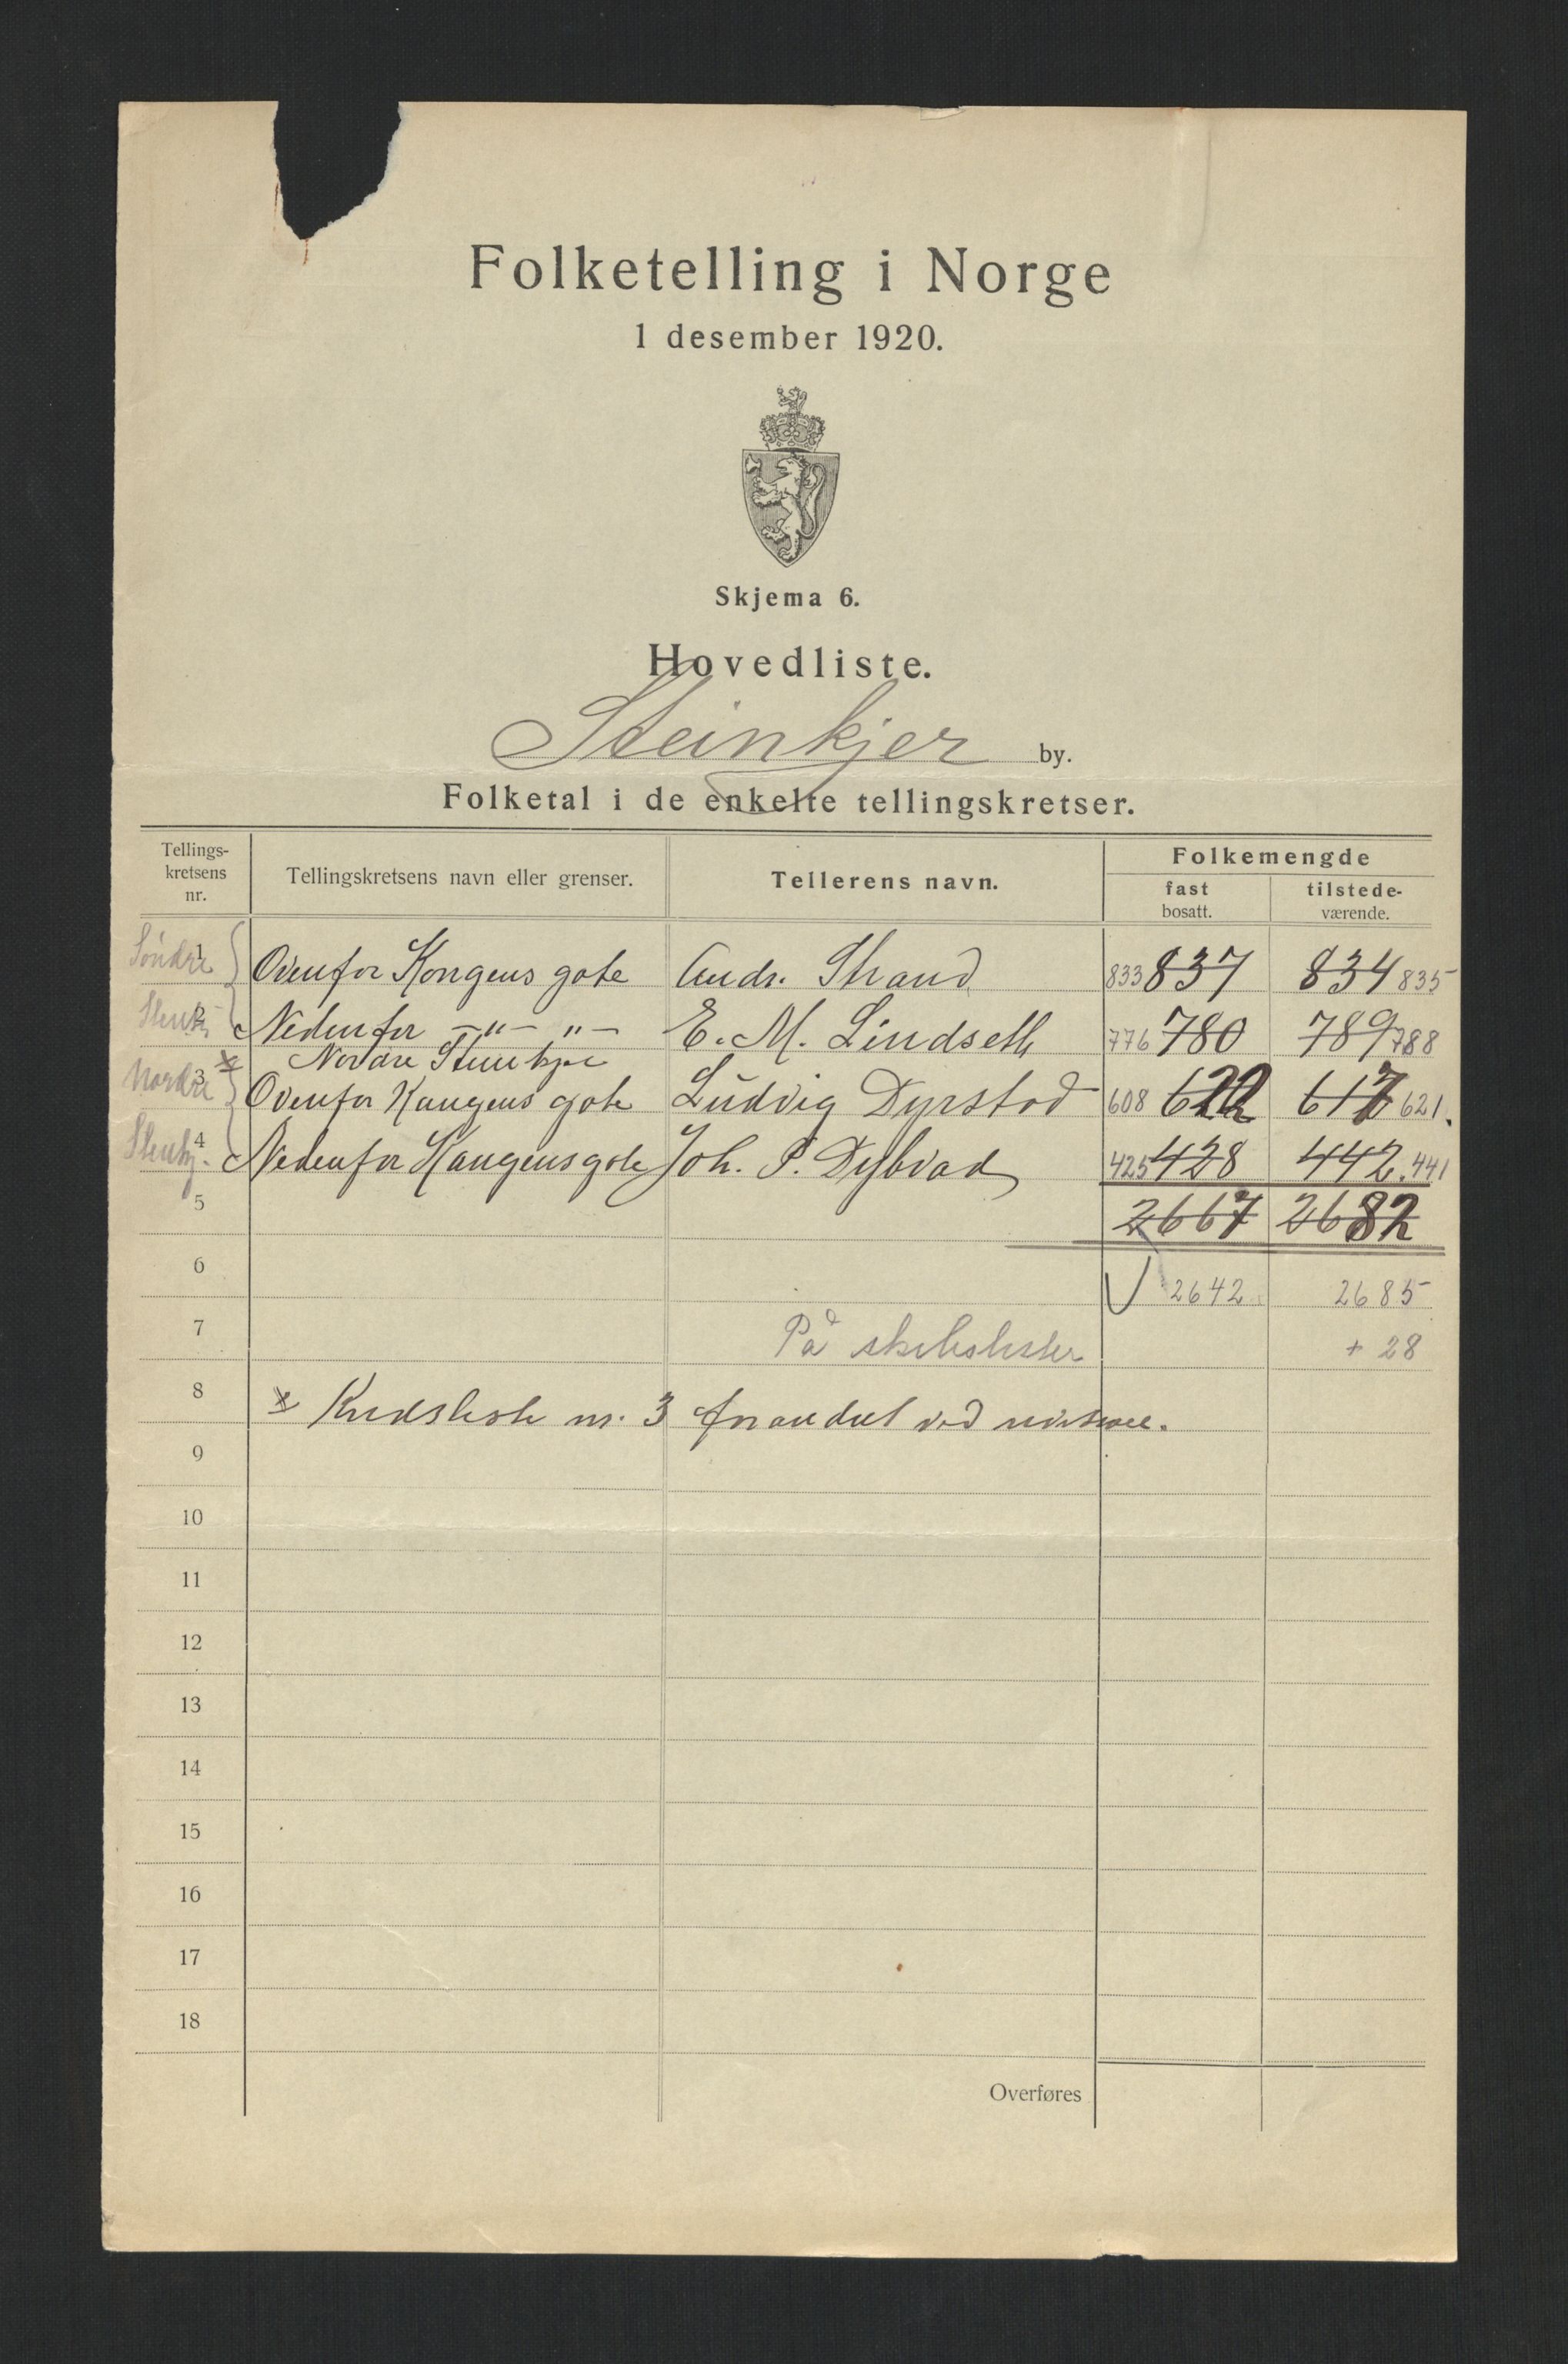 Folketelling i Norge
1 desember 1920.
Skjema 6.
Hovedliste.
Steinkjer by.
Folketal i de enkelte tellingskretser.
Tellings-
kretsens
nr.
Tellingskretsens navn eller grenser.
Tellerens navn.
Folkemengde
fast
bosatt.
tilstede-
værende.
Söndre 1 Ovenfor Kongens gate Andr. Strand 833 837 834 835
2 Nedenfor -"- "- E. M. Lindseth 776 780 789 788
x Nordre Stenkjær
Nordre 3 Ovenfor Kongens gate Ludvig Dyrstad 608 622 617 621.
Stenkj. 4 Nedenfor Kongens gate Joh. P. Dybvad 425 428 442. 441
5 2667 2682
6 2642 2685
7 På skibslister + 28
8 x Kredsliste nr. 3 forandret ved
9
10
11
12
13
14
15
16
17
18
Overføres